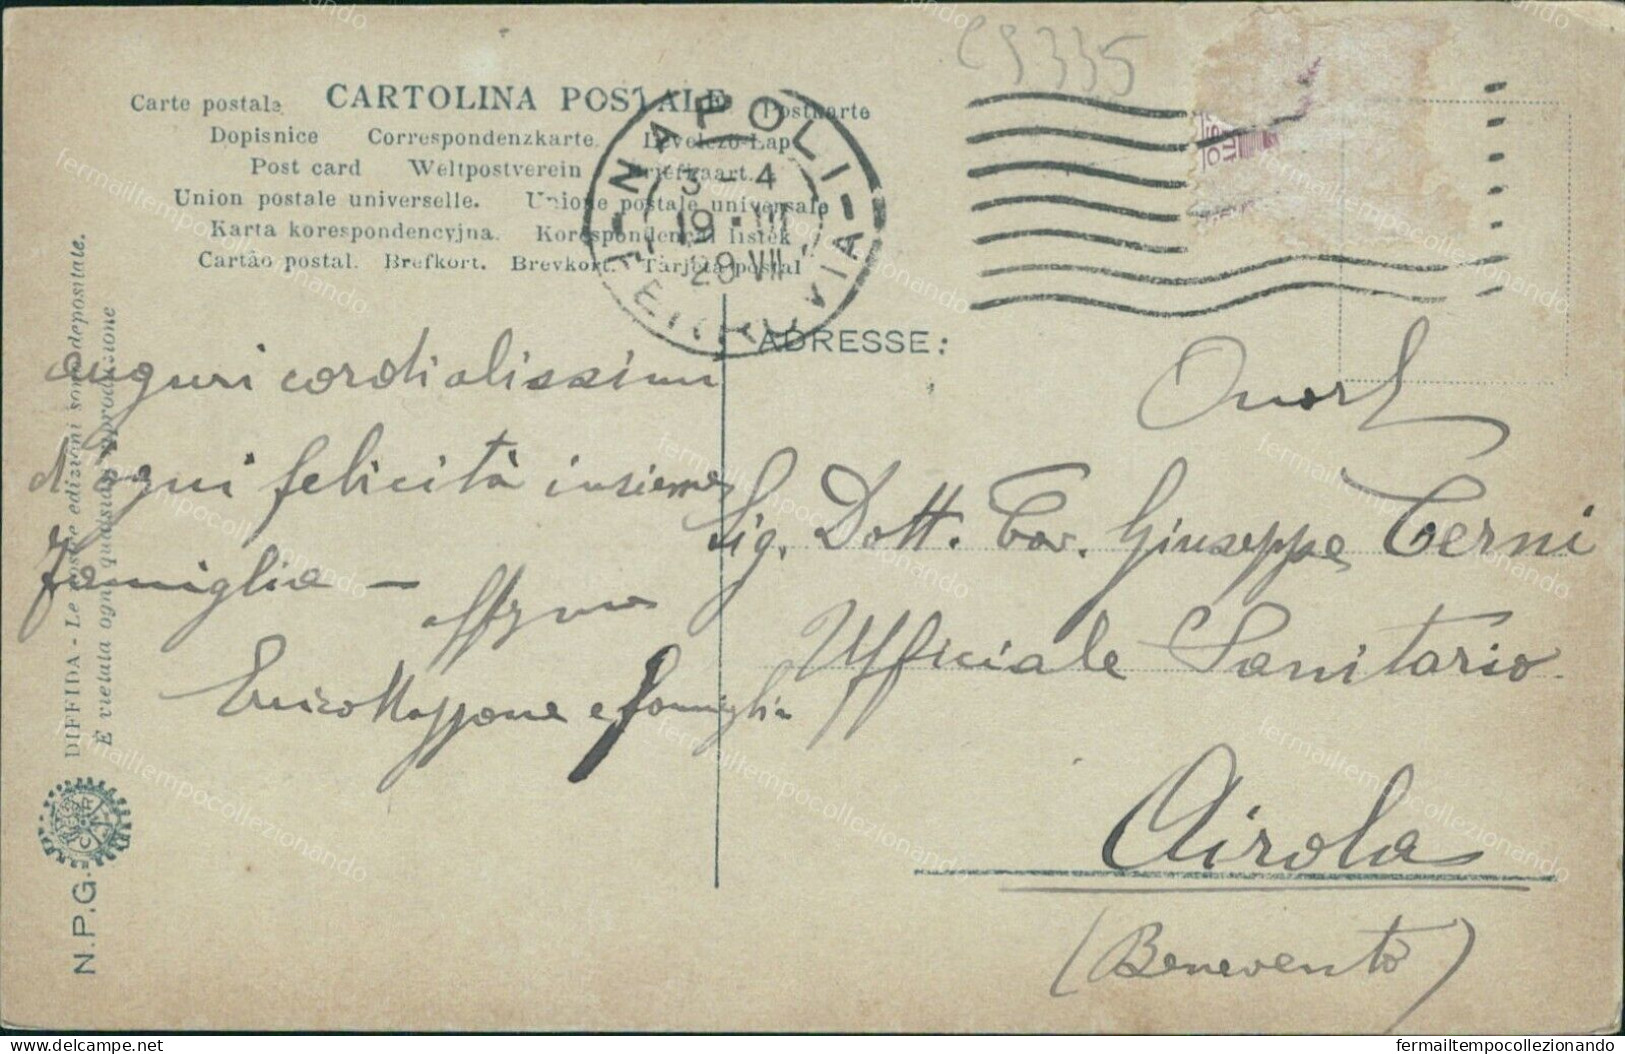 C9335
Carte postale CARTOLINA POSTALE Postkarte
Dopisnice Correspondenzkarte. Levelezö-Lap
Post card Weltpostverein Briefkaart.
Union postale universelle. Unione postale universale
Karta korespondencyjna. Korespondencni listek
Cartão postal. Brefkort. Brevkort. Tarjeta postal
NAPOLI
3-4
19·III
29 VII
FERROVIA
ADRESSE:
auguri cordialissimi
d'ogni felicità insieme
famiglia —
Enrico Mappone e famiglia
Sig. Dott. Cav. Giuseppe Terni
Ufficiale Sanitario
Airola
(Benevento)
DIFFIDA - Le nostre edizioni sono depositate.
È vietata ogni qualsiasi riproduzione
N.P.G.
fermailtempocollezionando
fermailtempocollezionando
delcampe.net
fermailtempocollezionando